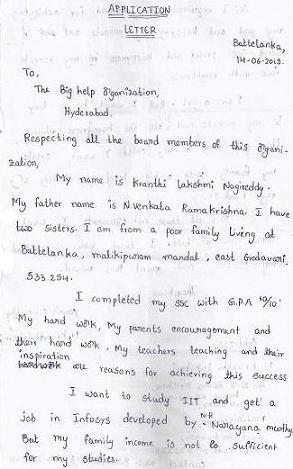 APPLICATION
LETTER
Battelanka,
14-06-2015.
To,
The Big help Organization,
Hyderabad.
Respecting all the board members of this organi-
zation,
My name is Kranthi Lakshmi Nagireddy.
My father name is N.Venkata Ramakrishna. I have
two sisters. I am from a poor family living at
Battelanka, malikipuram mandal, east Godavari,
533 254.
I completed my SSC with G.P.A 10/10.
My hard work, My parents encouragement and
their hard work, My teachers teaching and their
inspiration are reasons for achieving this success
I want to study IIT and get a
job in Infosys developed by N.R Narayana murthy
But my family income is not sufficient
for my studies.